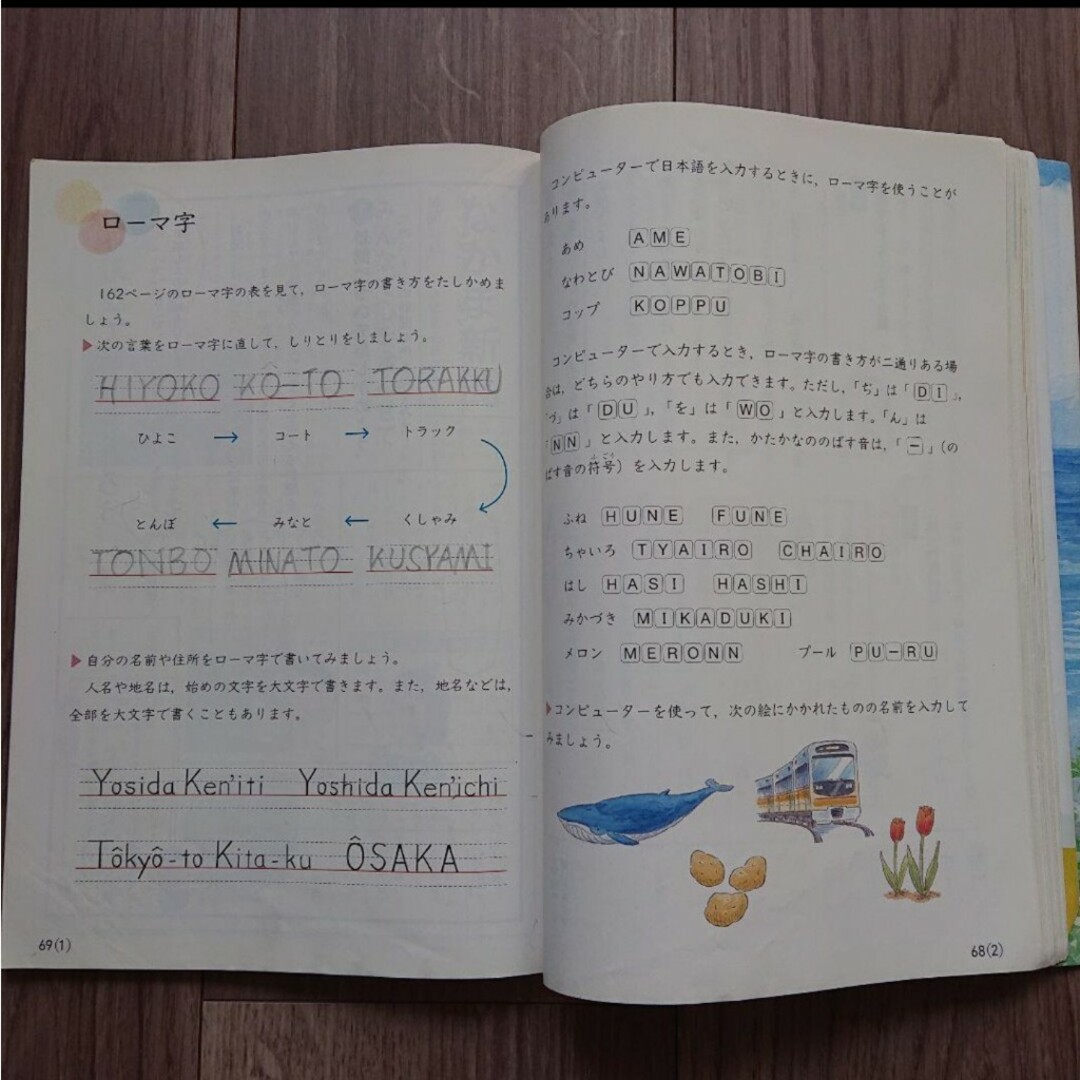 ローマ字
162ページのローマ字の表を見て，ローマ字の書き方をたしかめま
しょう。
▶次の言葉をローマ字に直して，しりとりをしましょう。
HIYOKO KÔ-TO TORAKKU
ひよこ → コート → トラック
とんぼ ← みなと ← くしゃみ
TONBO MINATO KUSYAMI
▶自分の名前や住所をローマ字で書いてみましょう。
人名や地名は，始めの文字を大文字で書きます。また，地名などは，
全部を大文字で書くこともあります。
Yosida Ken'iti Yoshida Ken'ichi
Tôkyô-to Kita-ku ÔSAKA
69(1)
コンピューターで日本語を入力するときに，ローマ字を使うことが
あります。
あめ AME
なわとび NAWATOBI
コップ KOPPU
コンピューターで入力するとき，ローマ字の書き方が二通りある場
合は，どちらのやり方でも入力できます。ただし，「ぢ」は「DI」，
「づ」は「DU」，「を」は「WO」と入力します。「ん」は
「NN」と入力します。また，かたかなののばす音は，「ー」（の
ばす音の符号）を入力します。
ふね HUNE FUNE
ちゃいろ TYAIRO CHAIRO
はし HASI HASHI
みかづき MIKADUKI
メロン MERONN プール PU-RU
▶コンピューターを使って，次の絵にかかれたものの名前を入力して
みましょう。
68(2)